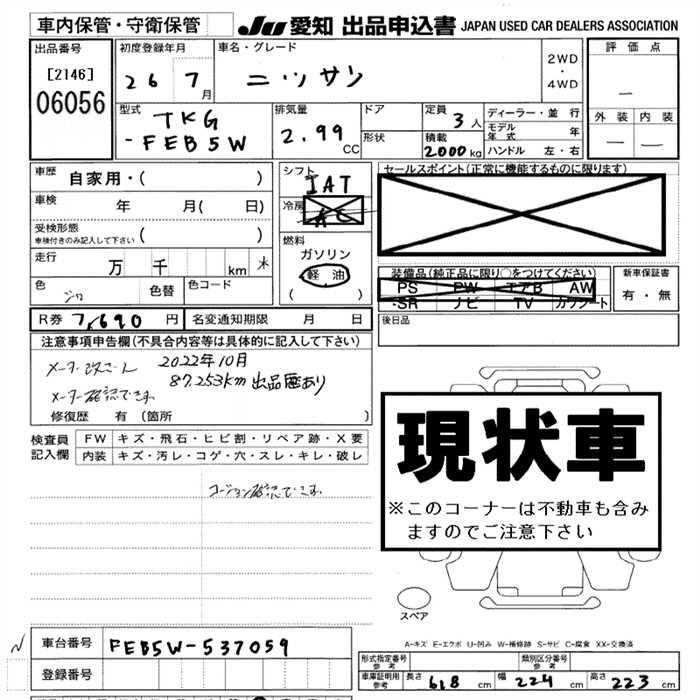 車内保管・守衛保管
JU 愛知 出品申込書 JAPAN USED CAR DEALERS ASSOCIATION
出品番号
[2146]
06056
初度登録年月
26 7月
車名・グレード
ニッサン
2WD・4WD
評価点
―
外装 内装
― ―
型式
TKG
-FEB5W
排気量
2.99 CC
ドア
形状
定員
3人
積載
2000kg
ディーラー・並行
モデル年式 年
ハンドル 左・右
車歴
自家用・( )
車検
年 月( 日)
受検形態
車検付きのみ記入して下さい
( )
走行
万 千 km
色
シロ
色替
色コード
シフト
IAT
冷房
AC
燃料
ガソリン
軽油
( )
セールスポイント(正常に機能するものに限ります)
装備品(純正品に限り○をつけてください)
PS PW エアB AW
SR ナビ TV カワシート
新車保証書
有・無
R券 7,690円
名変通知期限 月 日
後日品
注意事項申告欄(不具合内容等は具体的に記入して下さい)
2022年10月
87.253km 出品歴あり
メーター確認できず
修復歴 有 (箇所 )
検査員記入欄
FW キズ・飛石・ヒビ割・リペア跡・X要
内装 キズ・汚レ・コゲ・穴・スレ・キレ・破レ
現状車
※このコーナーは不動車も含みますのでご注意下さい
スペア
A-キズ E-エクボ U-凹み W-補修跡 S-サビ C-腐食 XX-交換済
車台番号 FEB5W-537059
登録番号
形式指定番号
参考
類別区分番号
参考
車庫証明用
参考
長さ 618 cm 幅 224 cm 高さ 223 cm